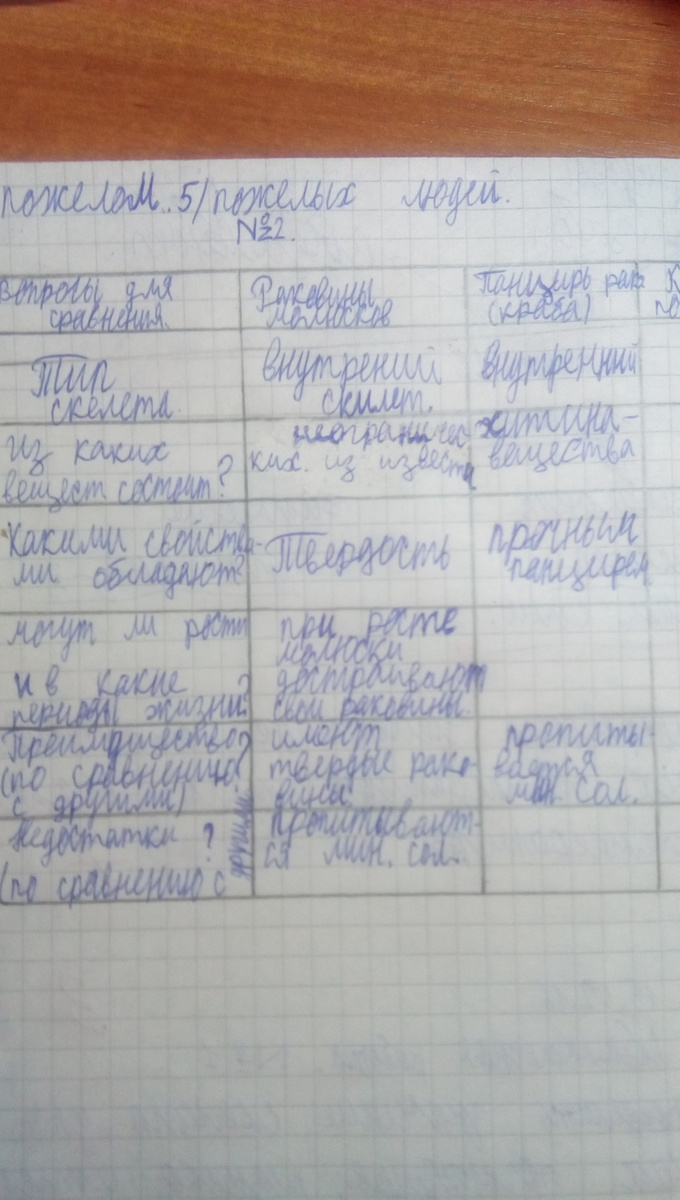 пожелом.. 5/пожелых людей.
№2.
Вопросы для сравнения.
Раковины молюсков
Панцирь рака (краба)
К
по
Тип скелета.
внутрений скилет.
внутренний
Из каких вещест. состоит?
неограничес-
ких. из извести
хитина-
вещества
Какими свойства-
ми обладают?
Твердость
прочным
панцирем
могут ли рости
и в какие
периоды жизни?
при росте
молюски
достраивают
свои раковины.
Преимущество?
(по сравнению
с другими)
имеют
твердые рако-
вины
пропиты-
вается
мин. сол.
Недостатки ?
(по сравнению с
другими
пропитывают-
ся мин. сол.